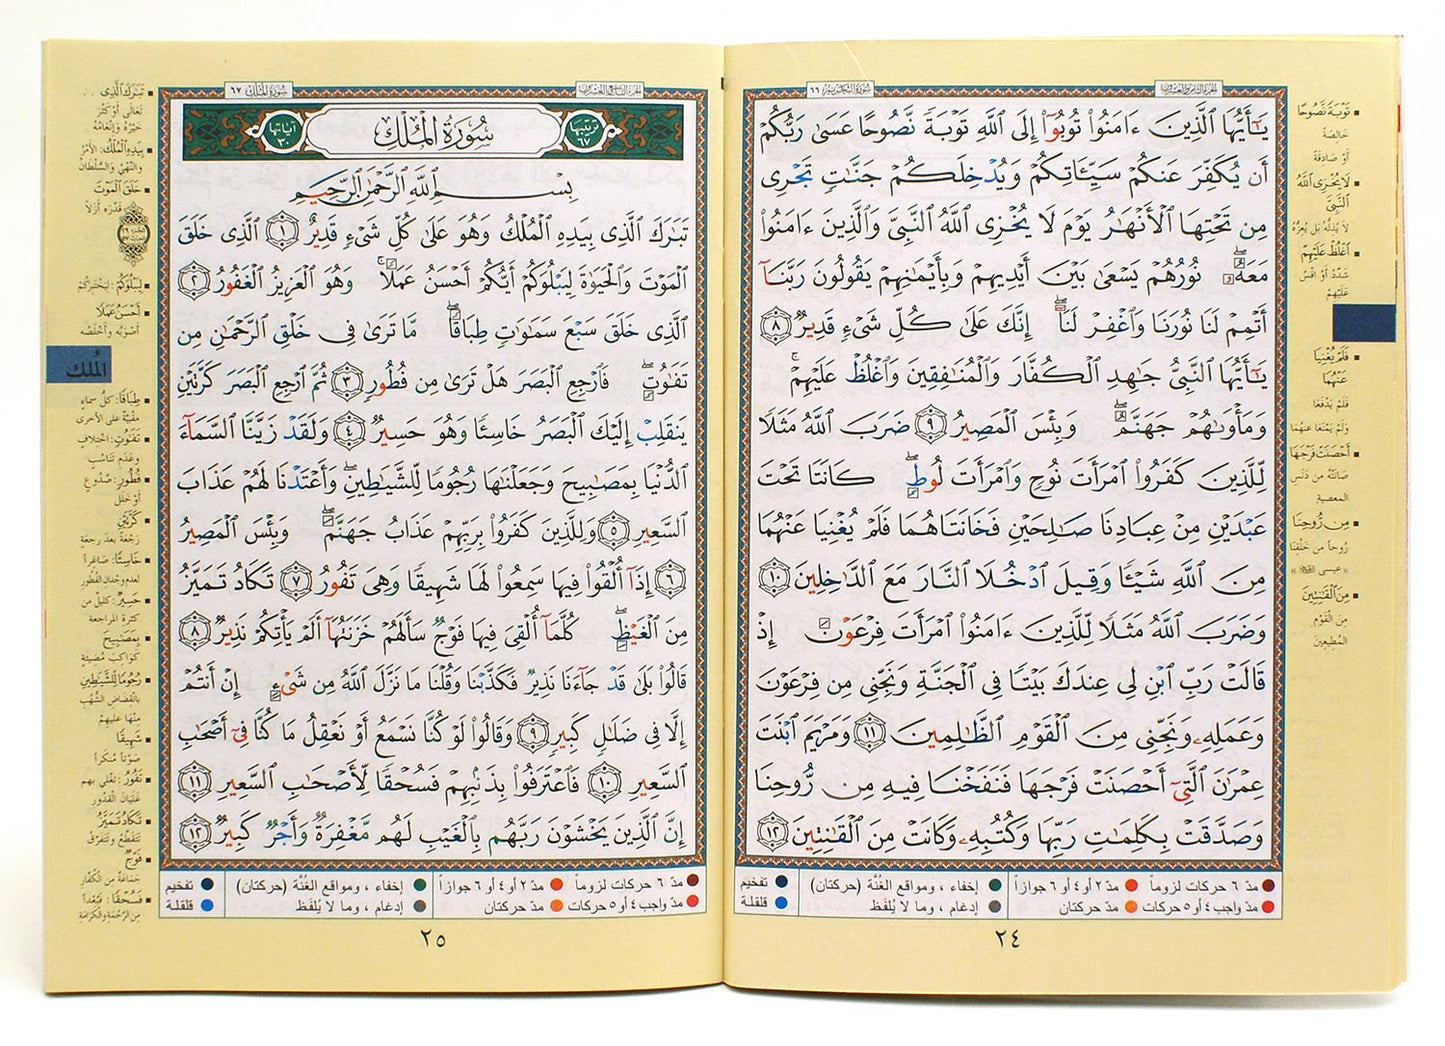 سورة التحريم ٦٦
يَٰٓأَيُّهَا ٱلَّذِينَ ءَامَنُوا۟ تُوبُوٓا۟ إِلَى ٱللَّهِ تَوْبَةً نَّصُوحًا عَسَىٰ رَبُّكُمْ
أَن يُكَفِّرَ عَنكُمْ سَيِّـَٔاتِكُمْ وَيُدْخِلَكُمْ جَنَّٰتٍ تَجْرِى
مِن تَحْتِهَا ٱلْأَنْهَٰرُ يَوْمَ لَا يُخْزِى ٱللَّهُ ٱلنَّبِىَّ وَٱلَّذِينَ ءَامَنُوا۟
مَعَهُۥ نُورُهُمْ يَسْعَىٰ بَيْنَ أَيْدِيهِمْ وَبِأَيْمَٰنِهِمْ يَقُولُونَ رَبَّنَآ
أَتْمِمْ لَنَا نُورَنَا وَٱغْفِرْ لَنَآ إِنَّكَ عَلَىٰ كُلِّ شَىْءٍ قَدِيرٌ ٨
يَٰٓأَيُّهَا ٱلنَّبِىُّ جَٰهِدِ ٱلْكُفَّارَ وَٱلْمُنَٰفِقِينَ وَٱغْلُظْ عَلَيْهِمْ
وَمَأْوَىٰهُمْ جَهَنَّمُ وَبِئْسَ ٱلْمَصِيرُ ٩ ضَرَبَ ٱللَّهُ مَثَلًا
لِّلَّذِينَ كَفَرُوا۟ ٱمْرَأَتَ نُوحٍ وَٱمْرَأَتَ لُوطٍ كَانَتَا تَحْتَ
عَبْدَيْنِ مِنْ عِبَادِنَا صَٰلِحَيْنِ فَخَانَتَاهُمَا فَلَمْ يُغْنِيَا عَنْهُمَا
مِنَ ٱللَّهِ شَيْـًٔا وَقِيلَ ٱدْخُلَا ٱلنَّارَ مَعَ ٱلدَّٰخِلِينَ ١٠
وَضَرَبَ ٱللَّهُ مَثَلًا لِّلَّذِينَ ءَامَنُوا۟ ٱمْرَأَتَ فِرْعَوْنَ إِذْ
قَالَتْ رَبِّ ٱبْنِ لِى عِندَكَ بَيْتًا فِى ٱلْجَنَّةِ وَنَجِّنِى مِن فِرْعَوْنَ
وَعَمَلِهِۦ وَنَجِّنِى مِنَ ٱلْقَوْمِ ٱلظَّٰلِمِينَ ١١ وَمَرْيَمَ ٱبْنَتَ
عِمْرَٰنَ ٱلَّتِىٓ أَحْصَنَتْ فَرْجَهَا فَنَفَخْنَا فِيهِ مِن رُّوحِنَا
وَصَدَّقَتْ بِكَلِمَٰتِ رَبِّهَا وَكُتُبِهِۦ وَكَانَتْ مِنَ ٱلْقَٰنِتِينَ ١٢
تَوْبَةً نَّصُوحًا
خالصة
أو صادقة
لَا يُخْزِى ٱللَّهُ
ٱلنَّبِىَّ
لا يذله بل يعزه
ٱغْلُظْ عَلَيْهِمْ
شدد أو اقس
عليهم
فَلَمْ يُغْنِيَا
عَنْهُمَا
فلم يدفعا
ولم يمنعا عنهما
أَحْصَنَتْ فَرْجَهَا
صانته من دنس
المعصية
مِن رُّوحِنَا
روحاً من خلقنا
مِنَ ٱلْقَٰنِتِينَ
من القوم
المطيعين
مدّ ٦ حركات لزوماً مدّ ٢ أو ٤ أو ٦ جوازاً إخفاء ، ومواقع الغُنَّة (حركتان) تفخيم
مدّ واجب ٤ أو ٥ حركات مدّ حركتان إدغام ، وما لا يُلفَظ قلقلة
٢٤
سورة الملك ٦٧
ترتيبها ٦٧ سُورَةُ ٱلْمُلْكِ آياتها ٣٠
بِسْمِ ٱللَّهِ ٱلرَّحْمَٰنِ ٱلرَّحِيمِ
تَبَٰرَكَ ٱلَّذِى بِيَدِهِ ٱلْمُلْكُ وَهُوَ عَلَىٰ كُلِّ شَىْءٍ قَدِيرٌ ١ ٱلَّذِى خَلَقَ
ٱلْمَوْتَ وَٱلْحَيَوٰةَ لِيَبْلُوَكُمْ أَيُّكُمْ أَحْسَنُ عَمَلًا وَهُوَ ٱلْعَزِيزُ ٱلْغَفُورُ ٢
ٱلَّذِى خَلَقَ سَبْعَ سَمَٰوَٰتٍ طِبَاقًا مَّا تَرَىٰ فِى خَلْقِ ٱلرَّحْمَٰنِ مِن
تَفَٰوُتٍ فَٱرْجِعِ ٱلْبَصَرَ هَلْ تَرَىٰ مِن فُطُورٍ ٣ ثُمَّ ٱرْجِعِ ٱلْبَصَرَ كَرَّتَيْنِ
يَنقَلِبْ إِلَيْكَ ٱلْبَصَرُ خَاسِئًا وَهُوَ حَسِيرٌ ٤ وَلَقَدْ زَيَّنَّا ٱلسَّمَآءَ
ٱلدُّنْيَا بِمَصَٰبِيحَ وَجَعَلْنَٰهَا رُجُومًا لِّلشَّيَٰطِينِ وَأَعْتَدْنَا لَهُمْ عَذَابَ
ٱلسَّعِيرِ ٥ وَلِلَّذِينَ كَفَرُوا۟ بِرَبِّهِمْ عَذَابُ جَهَنَّمَ وَبِئْسَ ٱلْمَصِيرُ
٦ إِذَآ أُلْقُوا۟ فِيهَا سَمِعُوا۟ لَهَا شَهِيقًا وَهِىَ تَفُورُ ٧ تَكَادُ تَمَيَّزُ
مِنَ ٱلْغَيْظِ كُلَّمَآ أُلْقِىَ فِيهَا فَوْجٌ سَأَلَهُمْ خَزَنَتُهَآ أَلَمْ يَأْتِكُمْ نَذِيرٌ ٨
قَالُوا۟ بَلَىٰ قَدْ جَآءَنَا نَذِيرٌ فَكَذَّبْنَا وَقُلْنَا مَا نَزَّلَ ٱللَّهُ مِن شَىْءٍ إِنْ أَنتُمْ
إِلَّا فِى ضَلَٰلٍ كَبِيرٍ ٩ وَقَالُوا۟ لَوْ كُنَّا نَسْمَعُ أَوْ نَعْقِلُ مَا كُنَّا فِىٓ أَصْحَٰبِ
ٱلسَّعِيرِ ١٠ فَٱعْتَرَفُوا۟ بِذَنۢبِهِمْ فَسُحْقًا لِّأَصْحَٰبِ ٱلسَّعِيرِ ١١
إِنَّ ٱلَّذِينَ يَخْشَوْنَ رَبَّهُم بِٱلْغَيْبِ لَهُم مَّغْفِرَةٌ وَأَجْرٌ كَبِيرٌ ١٢
تَبَٰرَكَ ٱلَّذِى ..
تعالى أو كثر
خيره وإنعامه
بِيَدِهِ ٱلْمُلْكُ: الأمر
والنهي والسلطان
خَلَقَ ٱلْمَوْتَ
قدّره أزلاً
لِيَبْلُوَكُمْ: ليختبركم
أَحْسَنُ عَمَلًا
أصوبه وأخلصه
الملك
طِبَاقًا: كلّ سماء
مقببة على الأخرى
تَفَٰوُتٍ: اختلاف
وعدم تناسب
فُطُورٍ: صدوع
أو خلل
كَرَّتَيْنِ
رجعة بعد رجعة
خَاسِئًا: صاغراً
لعدم وجدان الفطور
حَسِيرٌ: كليل من
كثرة المراجعة
بِمَصَٰبِيحَ
كواكب مضيئة
رُجُومًا لِّلشَّيَٰطِينِ
بانقضاض الشهب
منها عليهم
شَهِيقًا
صوتاً منكراً
تَفُورُ: تغلي بهم
غليان القدور
تَكَادُ تَمَيَّزُ
تتقطع وتتفرق
فَوْجٌ
جماعة من الكفار
فَسُحْقًا: فبعداً
من الرحمة والكرامة
مدّ ٦ حركات لزوماً مدّ ٢ أو ٤ أو ٦ جوازاً إخفاء ، ومواقع الغُنَّة (حركتان) تفخيم
مدّ واجب ٤ أو ٥ حركات مدّ حركتان إدغام ، وما لا يُلفَظ قلقلة
٢٥